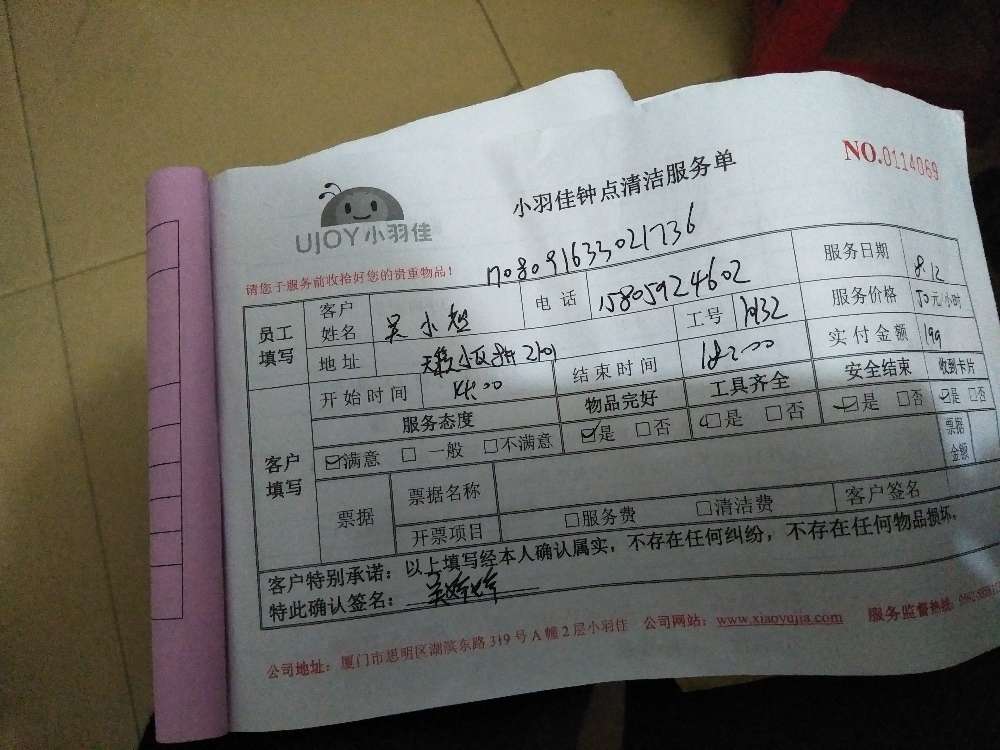 NO.0114069
小羽佳钟点清洁服务单
UJOY小羽佳
请您于服务前收拾好您的贵重物品！
1708091633021736
员工填写 客户姓名 吴小超 电话 15805924602 服务日期 8.12
地址 小区 2101 工号 1932 服务价格 50元/小时
开始时间 14:00 结束时间 18:00 实付金额 199
客户填写 服务态度 物品完好 工具齐全 安全结束 收到卡片
☑满意 □一般 □不满意 ☑是 □否 ☑是 □否 ☑是 □否 ☑是 □否
票据 票据名称 票据金额
开票项目 □服务费 □清洁费 客户签名
客户特别承诺：以上填写经本人确认属实，不存在任何纠纷，不存在任何物品损坏，
特此确认签名：吴婷婷
公司地址：厦门市思明区湖滨东路319号A幢2层小羽佳 公司网站：www.xiaoyujia.com 服务监督热线：